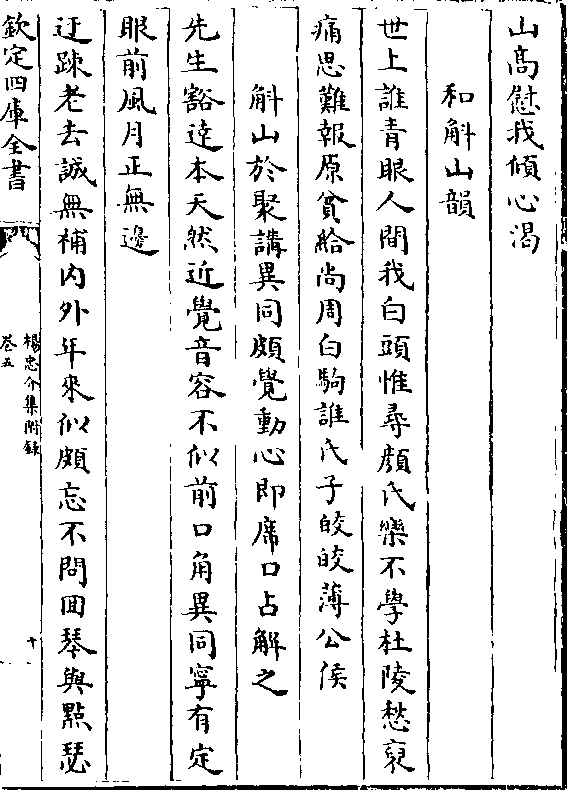 山髙慰我傾心渴
和斛山韻
世上誰青眼人間我白頭惟尋顔氏樂不學杜陵愁裒
痛思難報原貧給尚周白駒誰氏子皎皎薄公侯
斛山於聚講異同頗覺動心即席口占解之
先生豁達本天然近覺音容不似前口角異同寧有定
眼前風月正無邊
迂疎老去誠無補内外年來似頗忘不問回琴與點瑟
欽定四庫全書
楊忠介集附録
卷五
十